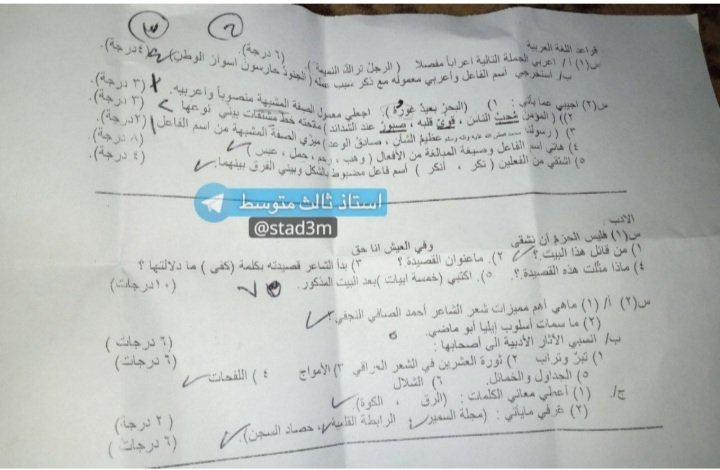 قواعد اللغة العربية
س(١) أ/ اعربي الجملة التالية اعراباً مفصلا ( الرجلُ تراكٌ النميمة ). (٦ درجة).
ب/ استخرجي اسم الفاعل وأعربي معموله مع ذكر سبب عمله (الجنودُ حارسونَ اسوارَ الوطنِ) (٤ درجة).
س(٢) اجيبي عما يأتي : ١) (البحرُ بعيدٌ غورُهُ). اجعلي معمول الصفة المشبهة منصوباً واعربيه. (٣ درجة)
٢) (المؤمنُ مُحبٌ الناس ، قويٌ قلبه ، صبورٌ عند الشدائد ) ماتحته خط مشتقات بيني نوعها (٣ درجة)
٣) ( رسولنا صلى الله عليه وآله وسلم عظيمُ الشأنِ ، صادقُ الوعدِ ) ميزي الصفة المشبهة من اسم الفاعل (٢درجة).
٤) هاتي اسم الفاعل وصيغة المبالغة من الأفعال ( وهب ، رحم ، حمل ، عبس ) (٨ درجة).
٥) اشتقي من الفعلين ( نكر ، أنكر ) اسم فاعل مضبوط بالشكل وبيني الفرق بينهما. (٤ درجة).
استاذ ثالث متوسط
@stad3m
الادب :
س(١) فليس الحزم أن نشقى وفي العيش انا حق
١) من قائل هذا البيت ؟ ٢). ماعنوان القصيدة ؟ ٣) بدأ الشاعر قصيدته بكلمة (كفى ) ما دلالتها ؟
٤) ماذا مثلت هذه القصيدة.؟. ٥). اكتبي (خمسة ابيات )بعد البيت المذكور. (١٠درجات)
س(٢) أ/ (١) ماهي أهم مميزات شعر الشاعر أحمد الصافي النجفي؟
(٢) ما سمات أسلوب إيليا أبو ماضي. (٦ درجات )
ب/ انسبي الآثار الأدبية الى أصحابها : (٦ درجات)
١) تبرٌ وتراب ٢) ثورة العشرين في الشعر العراقي ٣) الأمواج ٤ ) اللفحات
٥) الجداول والخمائل. ٦) الشلال
ج/. (١) أعطي معاني الكلمات : (الرق ، الكوة). (٢ درجة)
(٢) عرفي مايأتي : (مجلة السمير، الرابطة القلمية ، حصاد السجن). (٦ درجات)